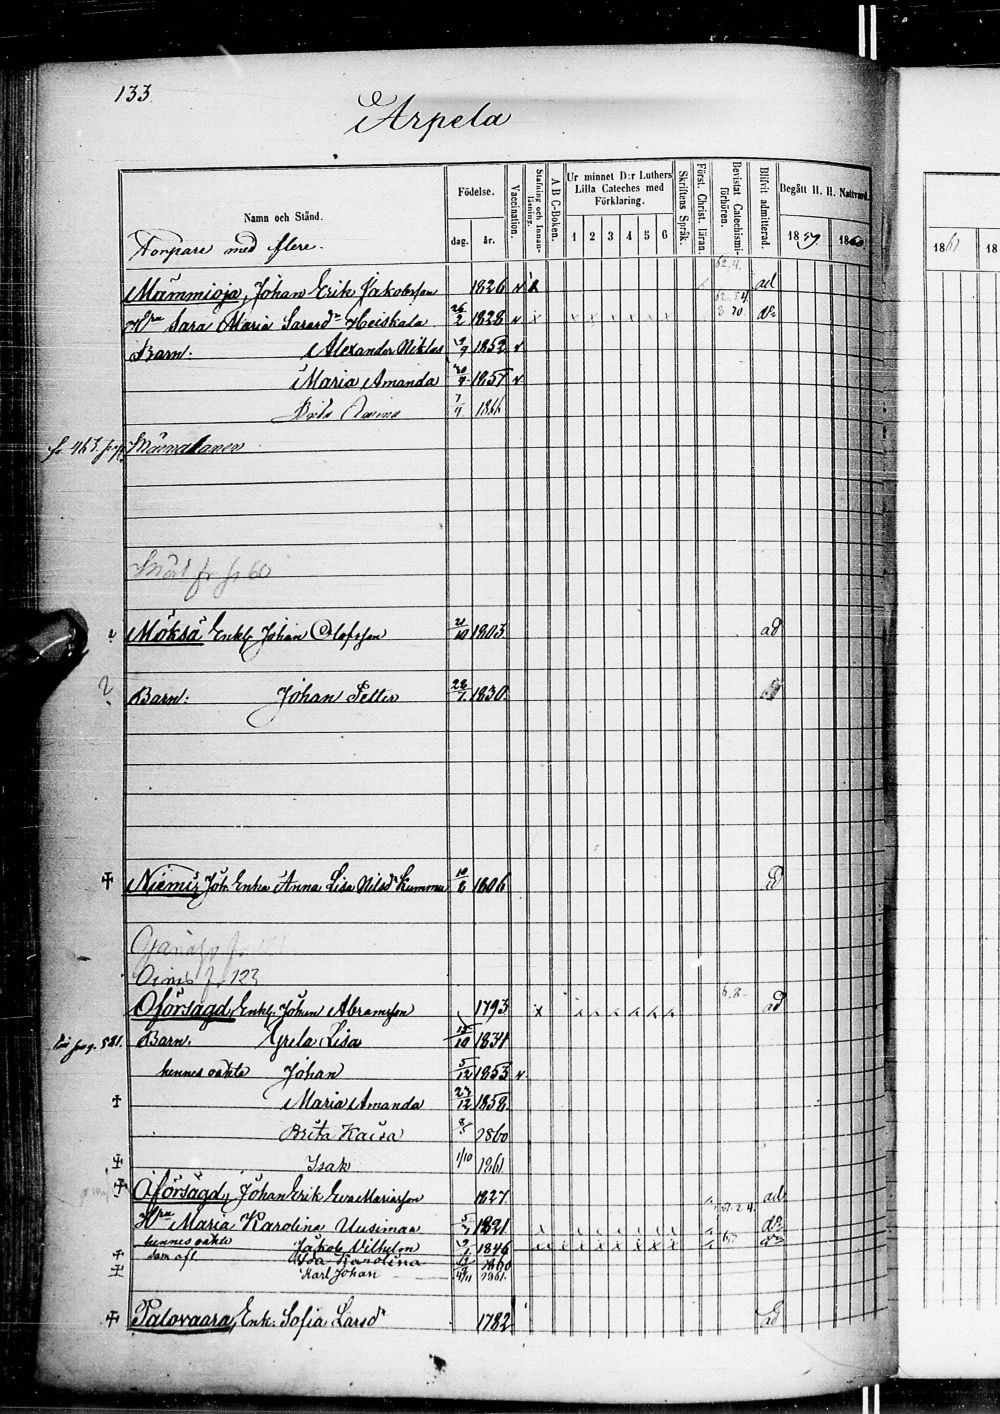 133
Arpela
Namn och Stånd.
Födelse.
dag.
år.
Vaccination.
Stafning och Innan-läsning.
A B C-Boken.
Ur minnet D:r Luthers
Lilla Cateches med
Förklaring.
1 2 3 4 5 6
Skriftens Språk.
Först. Christ. läran.
Bevistat Catechismi-förhören.
Blifvit admitterad.
Begått H. H. Nattvard.
1859 1860
1861 18
Torpare med flere.
Mämmioja, Johan Erik Jakobsson 1826 v ad
H:ru Sara Maria Heiskala 26/2 1828 v x d:o
Barn: Alexander Niklas 1852 v
Maria Amanda 1857 v
Brita 7/4 1866
fr. 60
Möksä Enkl. Johan Olofsson 21/10 1803 ad
Barn: Johan Petter 1830
Niemi, Joh. Enka Anna Lisa Nilsd:r Kumma 10/8 1806
123
Oförsagd, Enkl. Johan Abramsson 1793 x ad
Barn. Greta Lisa 15/10 1834
hennes oäkta Johan 5/12 1853 v.
Maria Amanda 23/12 1858
Brita Kaisa 1860
Isak 1/10 1861
Oförsagd, Johan Erik Eva Mariasson 1827 ad
H:ru Maria Karolina Uusimaa 1821 d:o
hennes oäkta Jakob Vilhelm 1846
Ida Karolina 1860
Karl Johan 1861
Palovaara, Enk. Sofia Larsd:r 1782 ad